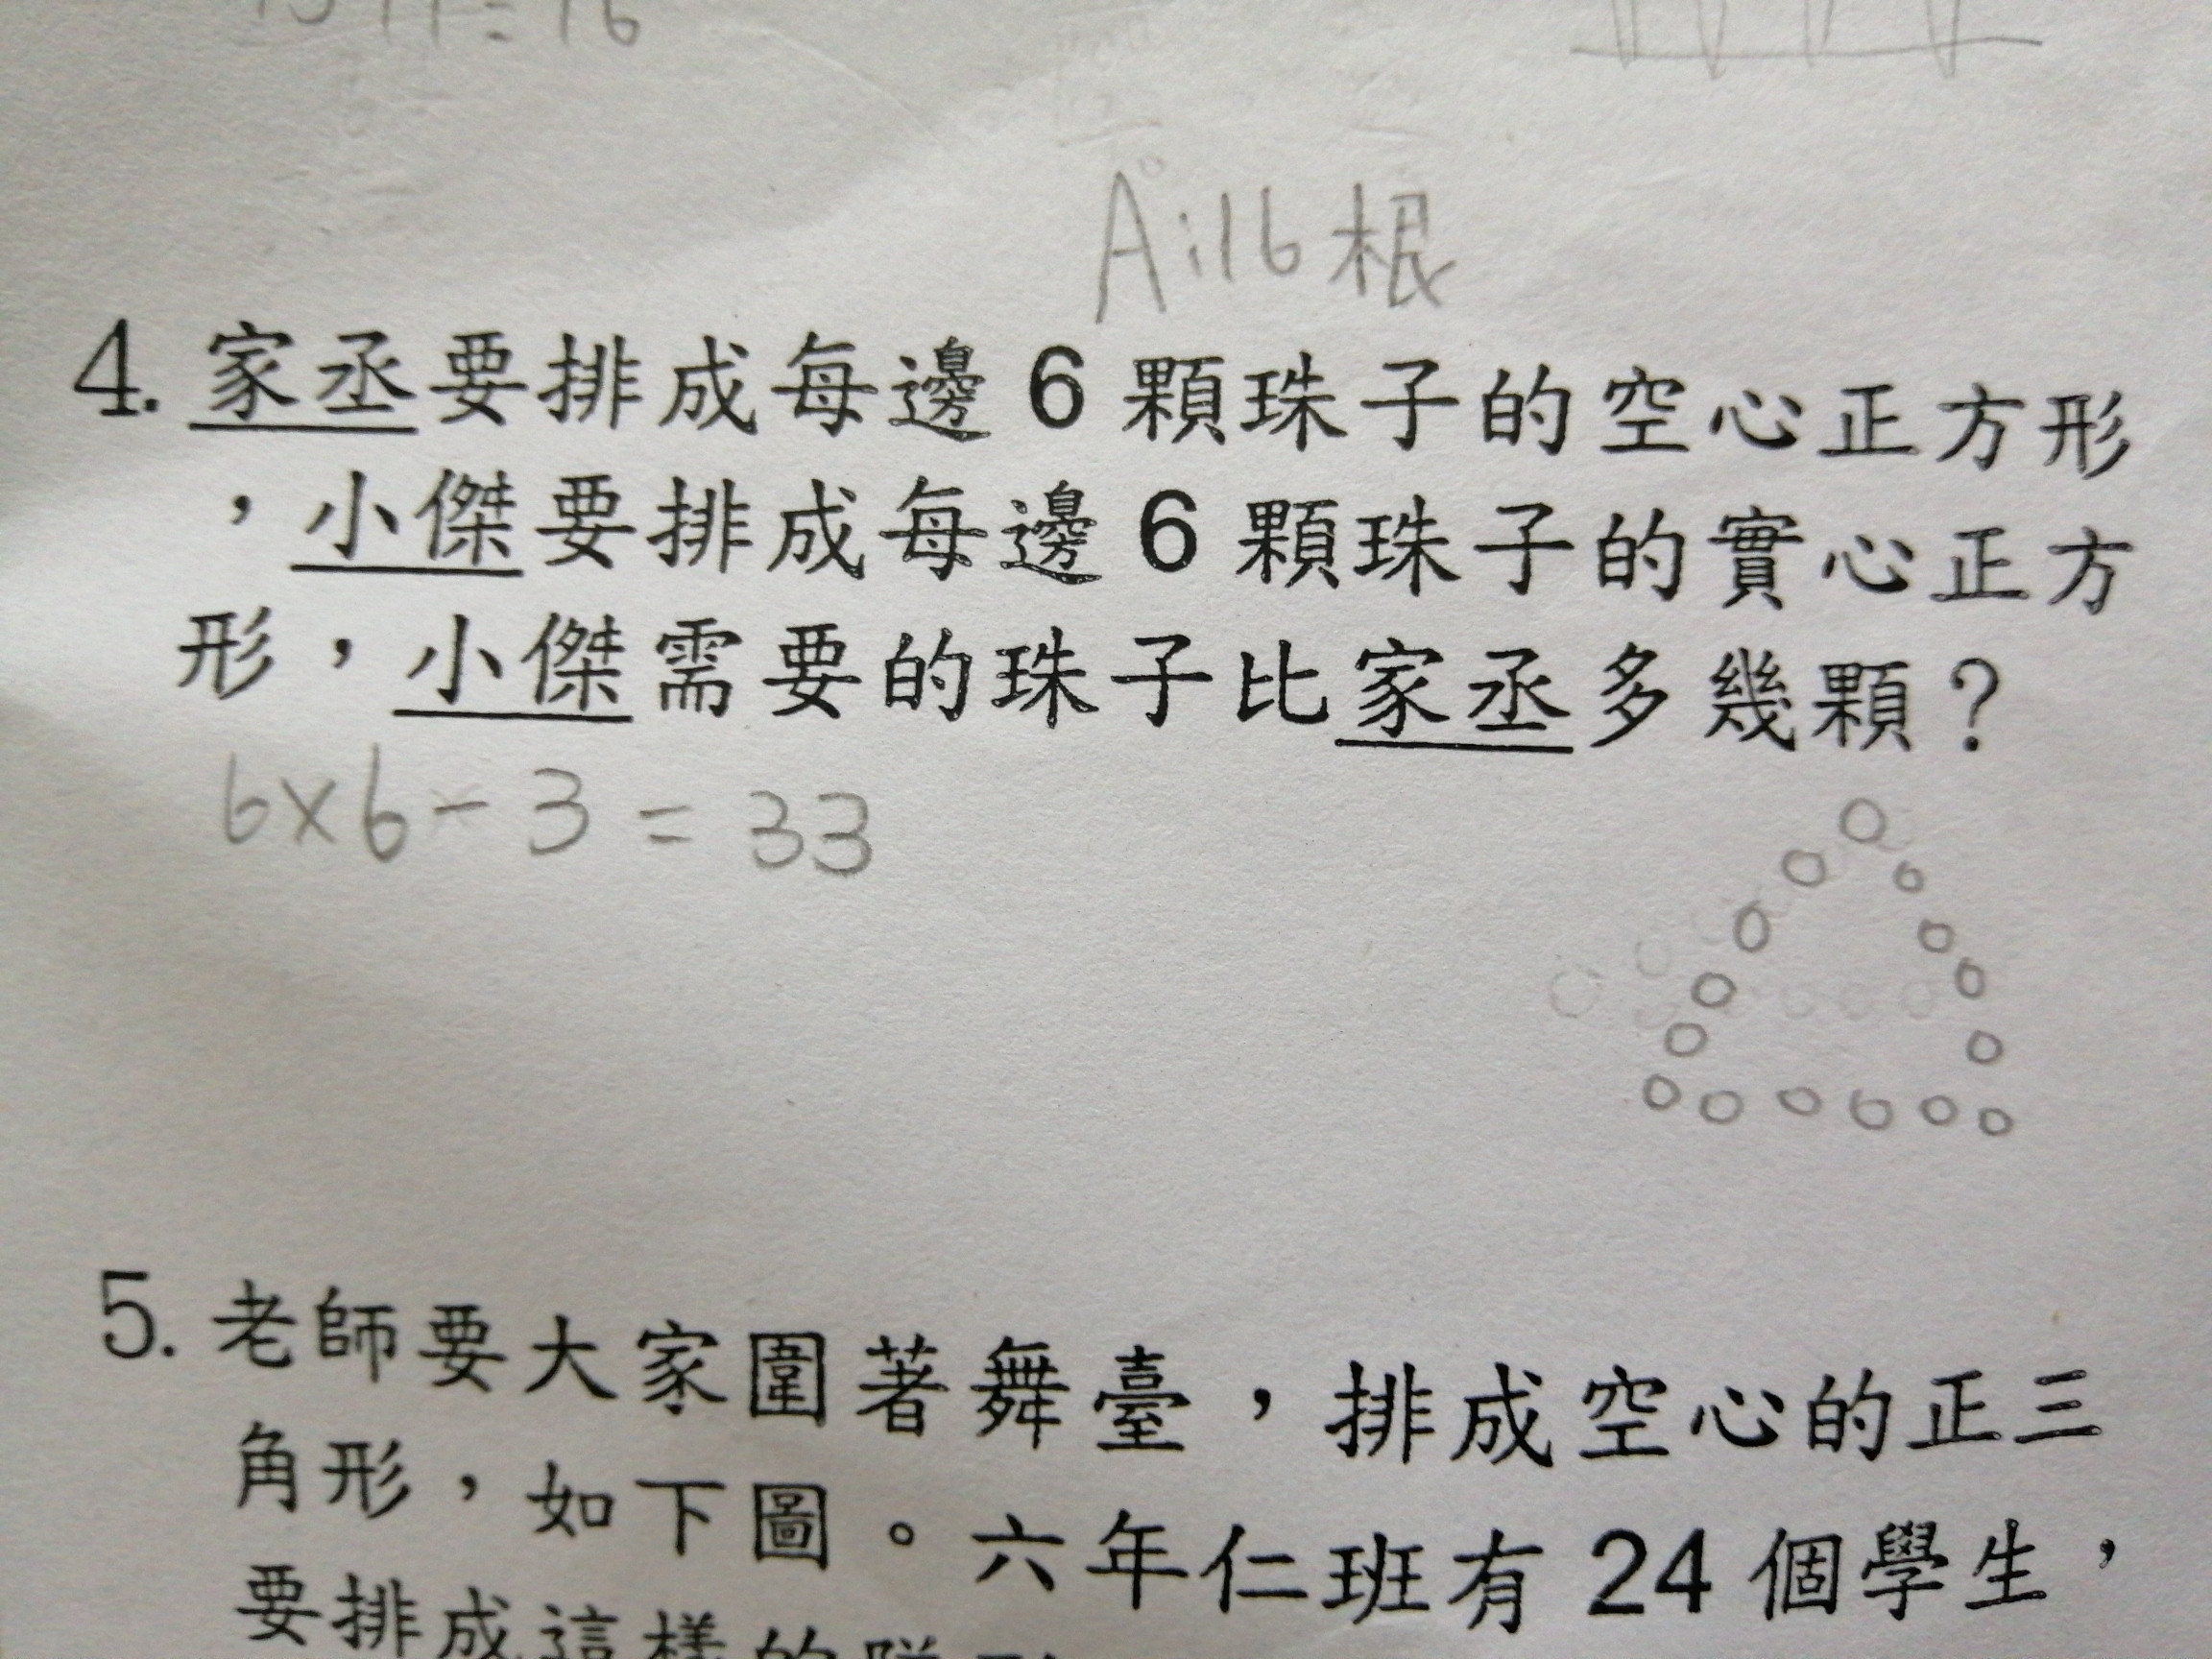 =16
A:16根
4.家丞要排成每邊6顆珠子的空心正方形
，小傑要排成每邊6顆珠子的實心正方
形，小傑需要的珠子比家丞多幾顆？
6×6-3=33
5.老師要大家圍著舞臺，排成空心的正三
角形，如下圖。六年仁班有24個學生，
要排成這樣的隊形